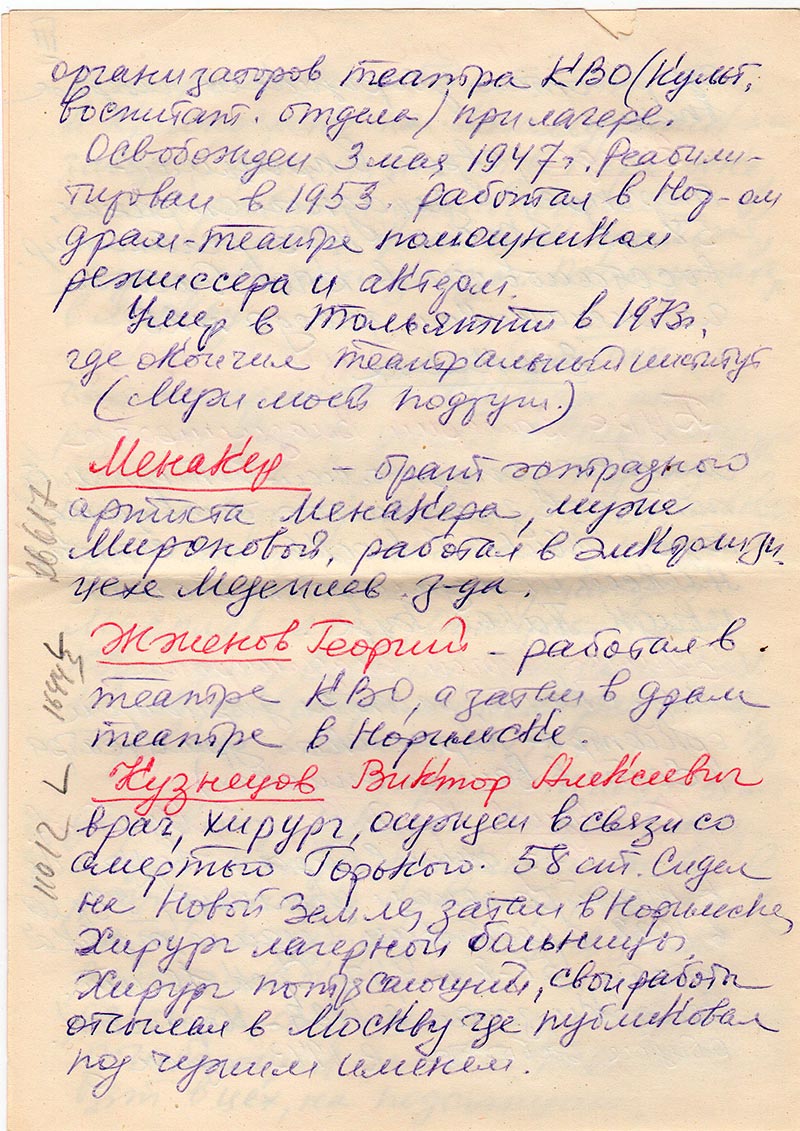 организаторов театра КВО (Культ.
воспитат. отдела) при лагере.
Освобожден 3 мая 1947 г. Реабили-
тирован в 1953. работал в Нор-ом
драм-театре помощником
режиссера и актером.
Умер в Тольятти в 1973г.
где окончил театральный институт
(Муж моей подруги.)
Менакер – брат эстрадного
артиста Менакера, мужа
Мироновой, работал в Электролизн.
цехе Медеплав. з-да.
Жженов Георгий – работал в
театре КВО, а затем в драм
театре в Норильске.
Кузнецов Виктор Алексеевич
врач, хирург, осужден в связи со
смертью Горького. 58 ст. Сидел
на Новой Земле, затем в Норильске,
Хирург лагерной больницы.
Хирург потрясающий, свои работы
отсылал в Москву где публиковал
под чужим именем.
26617
16445
11012